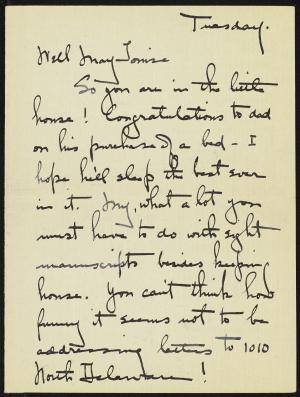 Tuesday.
Well May-Louise
So you are in the little
house! Congratulations to dad
on his purchase of a bed - I
hope he'll sleep the best ever
in it. My, what a lot you
must have to do with eight
manuscripts besides keeping
house. You can't think how
funny it seems not to be
addressing letters to 1010
North Delaware!